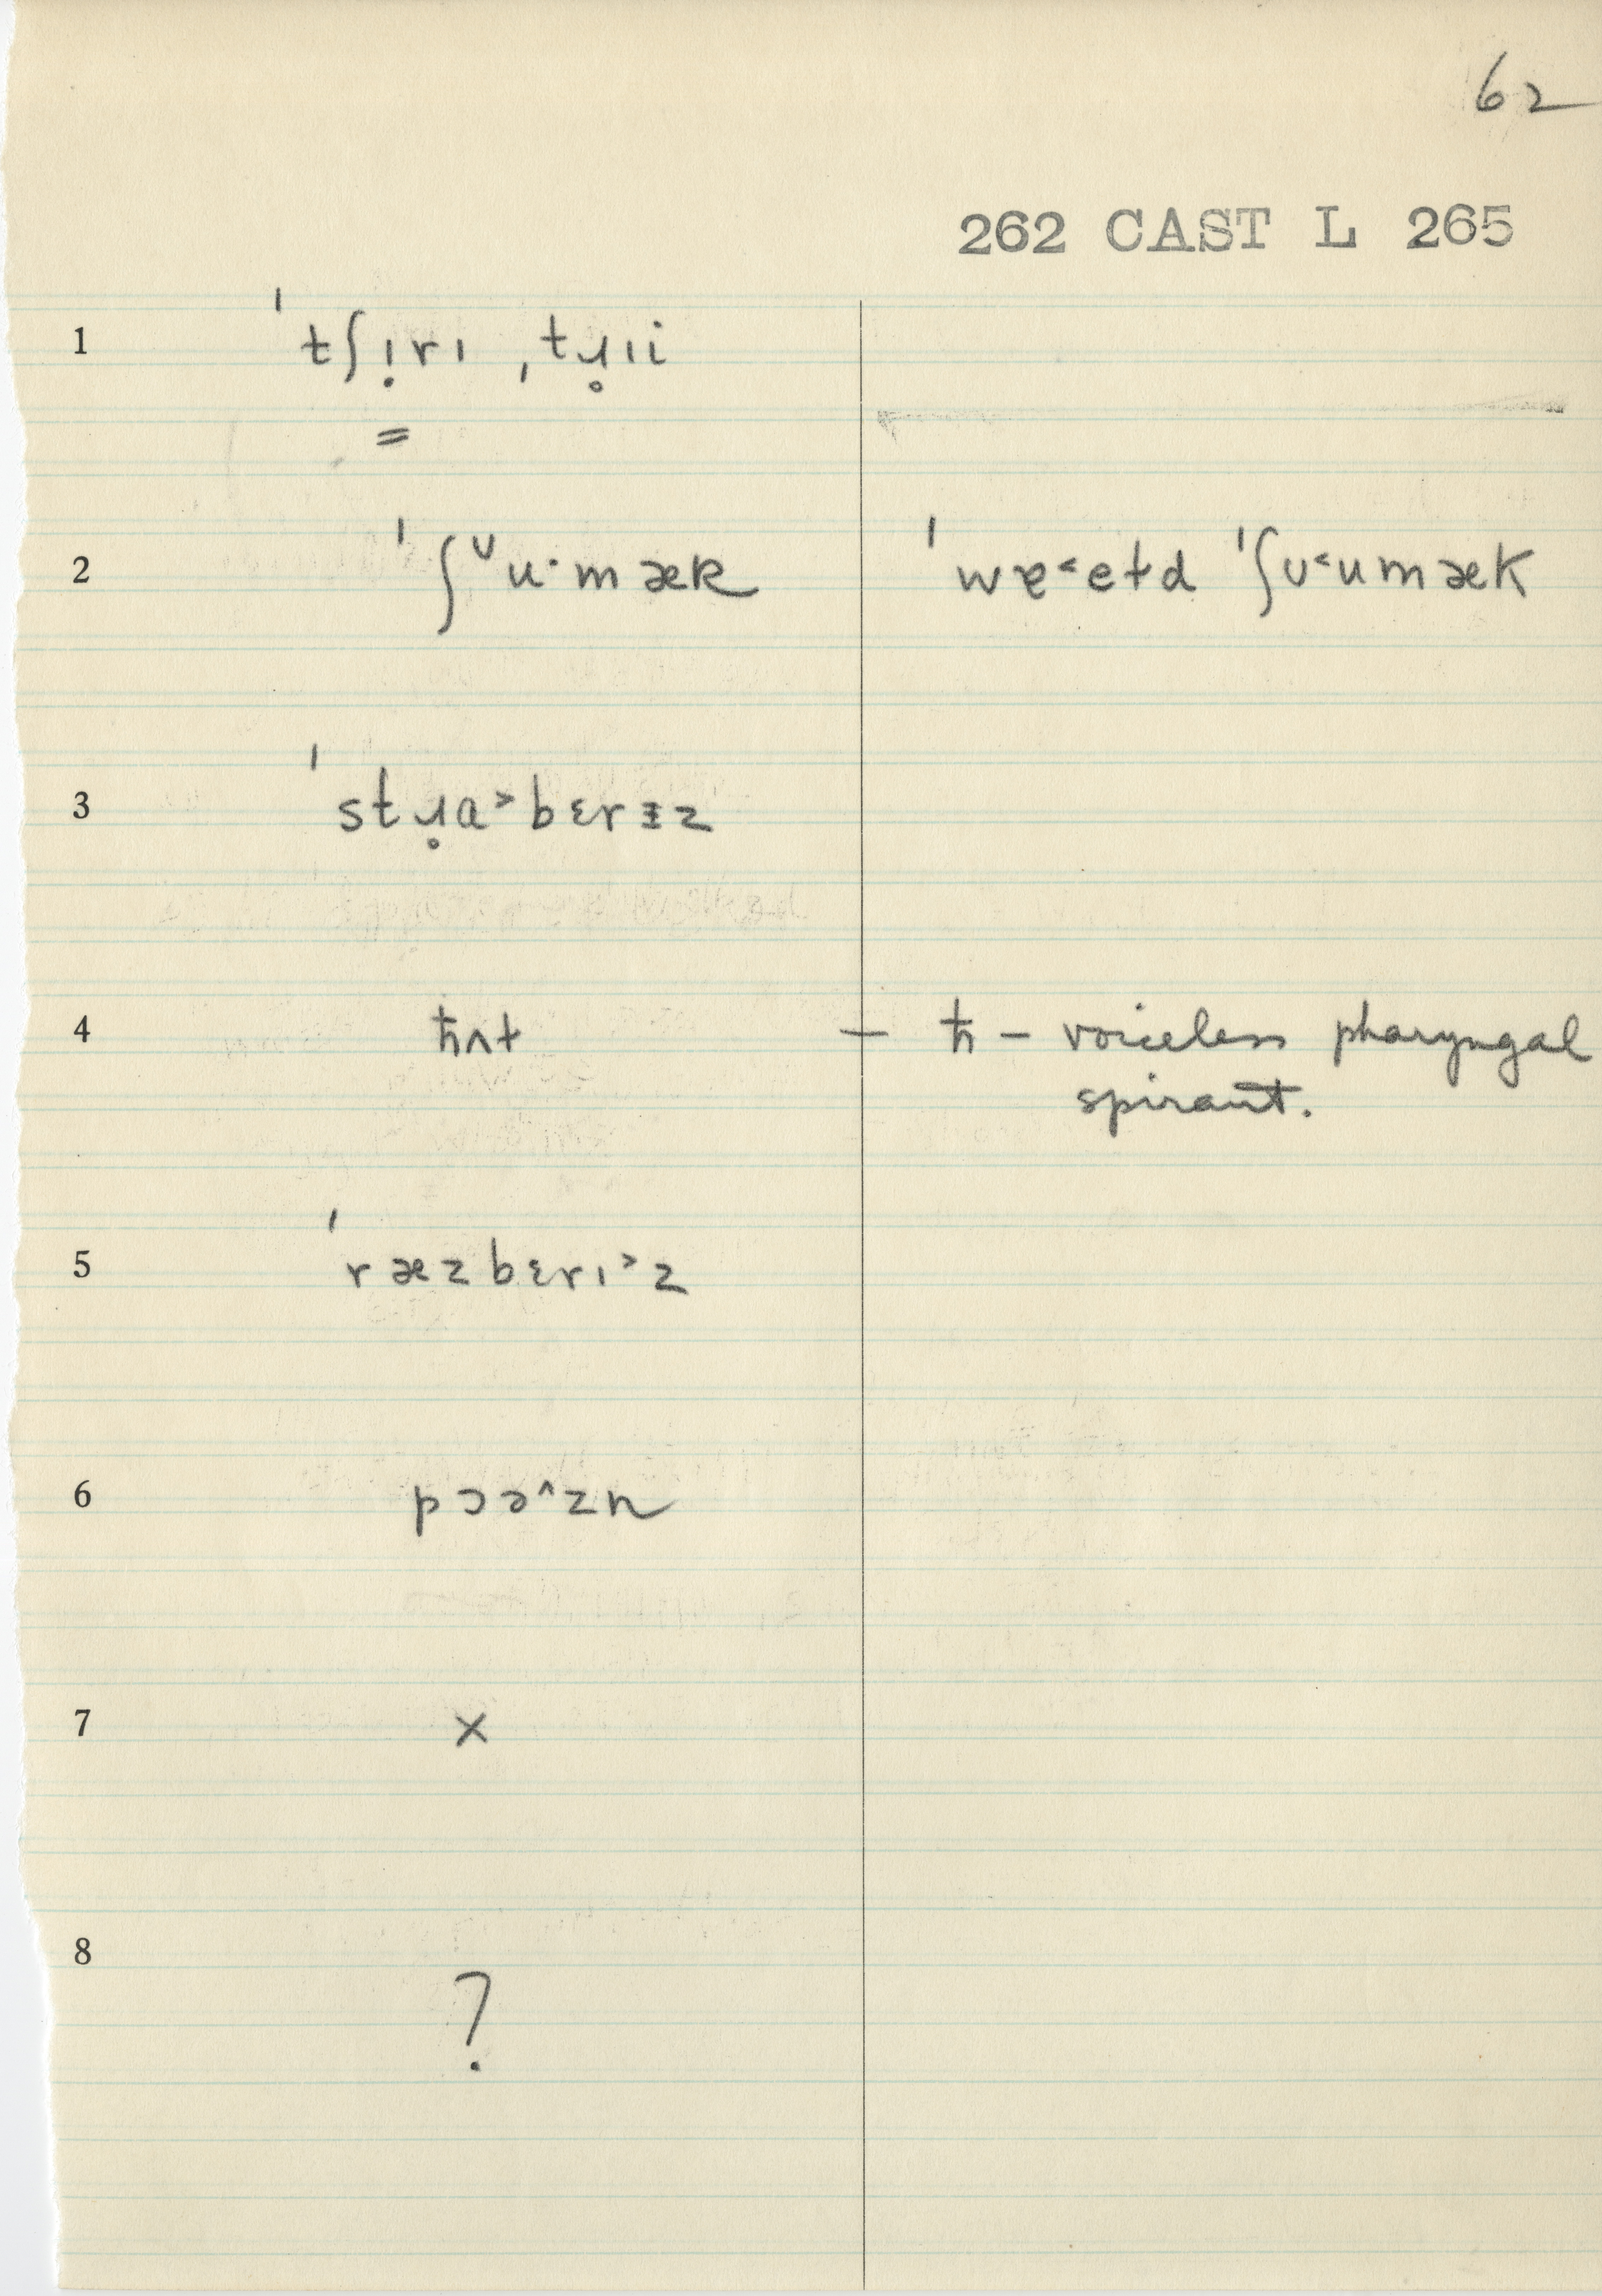 62
262 CAST L 265
1 ˈtʃı̣rı ˌtɹ̥ıi
2 ˈʃᶷu·mæk ˈwɐ˂eɫd ˈʃʊ˂umæk
3 ˈstɹ̥a˃bɛrɪz
4 ħʌt — ħ – voiceless pharyngal
spirant.
5 ˈræzbɛrı˃z
6 pɔə^zn
7 ×
8
?